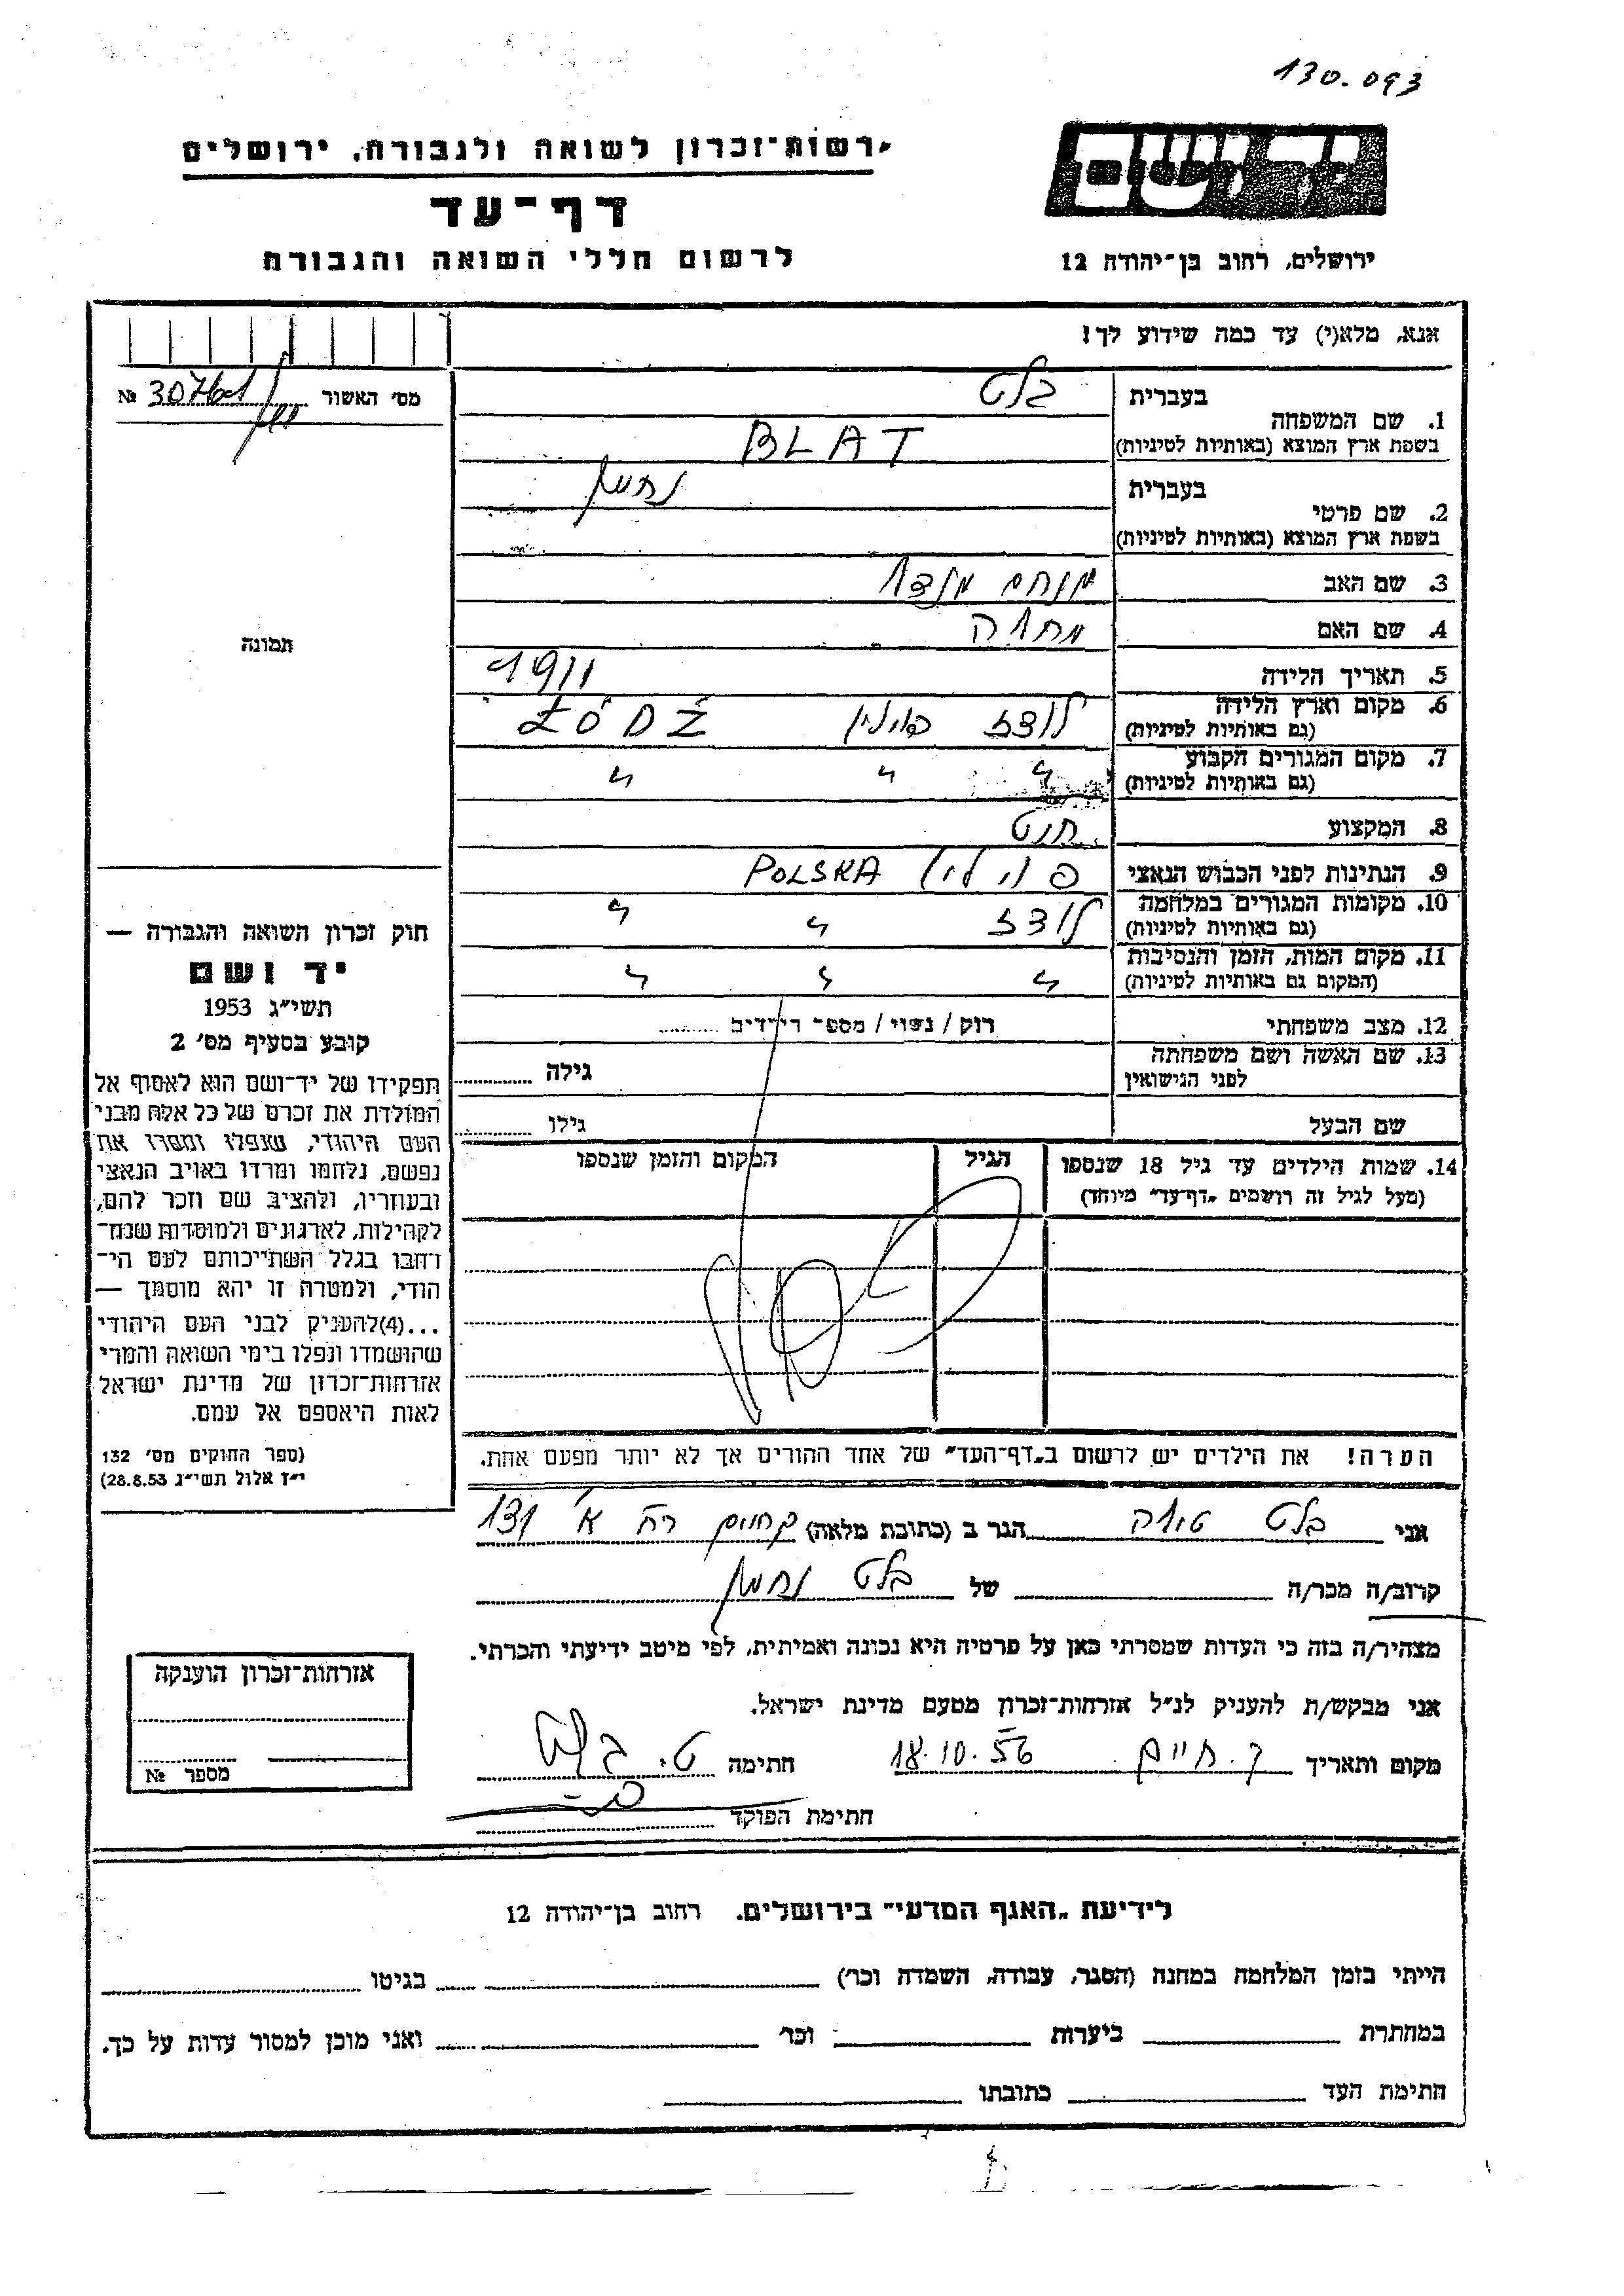 130.093
יד ושם
רשות-זכרון לשואה ולגבורה, ירושלים
דף-עד
לרשום חללי השואה והגבורה
ירושלים, רחוב בן-יהודה 12
אנא, מלא(י) עד כמה שידוע לך!
מס׳ האשור №
1. שם המשפחה
בעברית בלט
בשפת ארץ המוצא (באותיות לטיניות) BLAT
2. שם פרטי
בעברית נחמן
בשפת ארץ המוצא (באותיות לטיניות)
3. שם האב מנחם מנדל
4. שם האם
5. תאריך הלידה 1911
6. מקום וארץ הלידה לודז פולין ŁÓDŹ
(גם באותיות לטיניות)
7. מקום המגורים הקבוע " " "
(גם באותיות לטיניות)
8. המקצוע
9. הנתינות לפני הכבוש הנאצי פולין POLSKA
10. מקומות המגורים במלחמה לודז " "
(גם באותיות לטיניות)
11. מקום המות, הזמן והנסיבות " " "
(המקום גם באותיות לטיניות)
12. מצב משפחתי רוק / נשוי / מספר הילדים
13. שם האשה ושם משפחתה
לפני הנישואין גילה
שם הבעל גילו
14. שמות הילדים עד גיל 18 שנספו הגיל המקום והזמן שנספו
(מעל לגיל זה רושמים „דף-עד" מיוחד)
הערה! את הילדים יש לרשום ב„דף-העד" של אחד ההורים אך לא יותר מפעם אחת.
תמונה
חוק זכרון השואה והגבורה —
יד ושם
תשי״ג 1953
קובע בסעיף מס׳ 2
תפקידו של יד-ושם הוא לאסוף אל
המולדת את זכרם של כל אלה מבני
העם היהודי, שנפלו ומסרו את
נפשם, נלחמו ומרדו באויב הנאצי
ובעוזריו, ולהציב שם וזכר להם,
לקהילות, לארגונים ולמוסדות שנח-
רחבו בגלל השתייכותם לעם הי-
הודי, ולמטרה זו יהא מוסמך —
...(4)להעניק לבני העם היהודי
שהושמדו ונפלו בימי השואה והמרי
אזרחות-זכרון של מדינת ישראל
לאות היאספם אל עמם.
(ספר החוקים מס׳ 132
י״ז אלול תשי״ג 28.8.53)
אני בלט הגר ב (כתובת מלאה) 131
קרוב/ה מכר/ה של בלט נחמן
מצהיר/ה בזה כי העדות שמסרתי כאן על פרטיה היא נכונה ואמיתית, לפי מיטב ידיעתי והכרתי.
אני מבקש/ת להעניק לנ״ל אזרחות-זכרון מטעם מדינת ישראל.
מקום ותאריך ק. חיים 18.10.56 חתימה ט. בלט
חתימת הפוקד
אזרחות-זכרון הוענקה
מספר №
לידיעת „האגף המדעי" בירושלים. רחוב בן-יהודה 12
הייתי בזמן המלחמה במחנה (הסגר, עבודה, השמדה וכו׳) בגיטו
במחתרת ביערות וכו׳ ואני מוכן למסור עדות על כך.
חתימת העד כתובתו